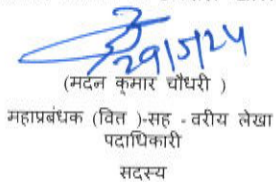 29/5/24
(मदन कुमार चौधरी )
महाप्रबंधक (वित्त )-सह - वरीय लेखा
पदाधिकारी
सदस्य